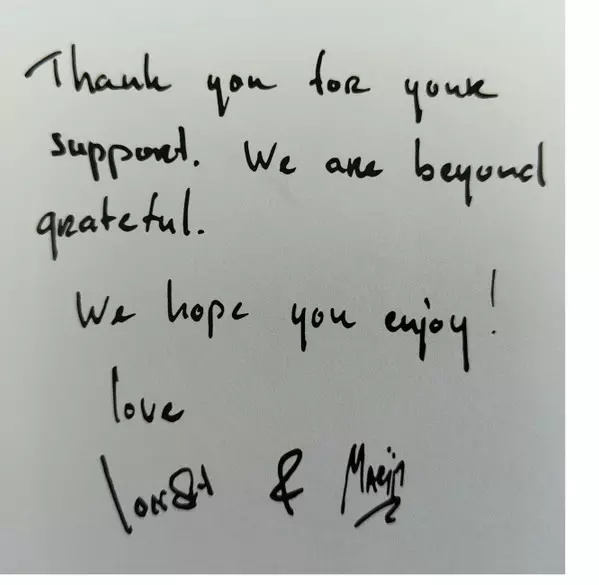 Thank you for your
support. We are beyond
grateful.
We hope you enjoy!
love
&